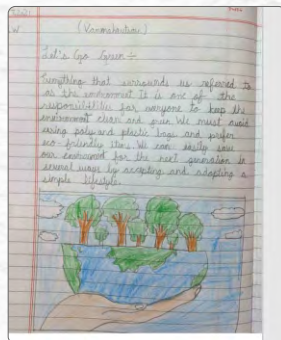 (Vanmahostav)
Let's Go Green :-
Everything that surrounds us referred to
as the environment. It is one of the
responsibilities for everyone to keep the
environment clean and green. We must avoid
using poly and plastic bags and prefer
eco-friendly items. We can easily save
our environment for the next generation in
several ways by accepting and adapting a
simple lifestyle.